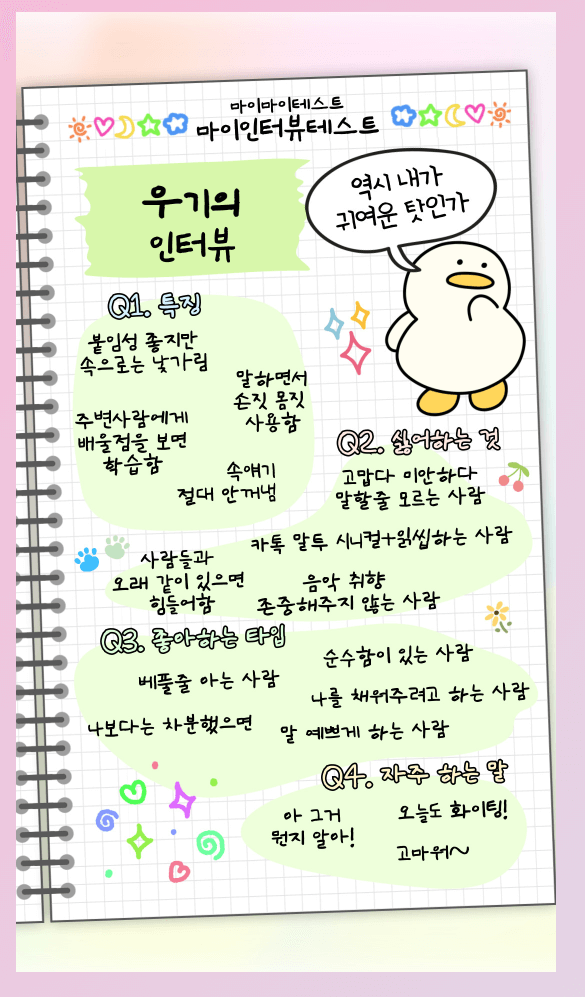 마이마이테스트
마이인터뷰테스트
우기의
인터뷰
역시 내가
귀여운 탓인가
Q1. 특징
붙임성 좋지만
속으로는 낯가림
말하면서
손짓 몸짓
사용함
주변사람에게
배울점을 보면
학습함
속얘기
절대 안꺼냄
Q2. 싫어하는 것
고맙다 미안하다
말할줄 모르는 사람
카톡 말투 시니컬+읽씹하는 사람
사람들과
오래 같이 있으면
힘들어함
음악 취향
존중해주지 않는 사람
Q3. 좋아하는 타입
순수함이 있는 사람
베풀줄 아는 사람
나를 채워주려고 하는 사람
나보다는 차분했으면
말 예쁘게 하는 사람
Q4. 자주 하는 말
아 그거
뭔지 알아!
오늘도 화이팅!
고마워~